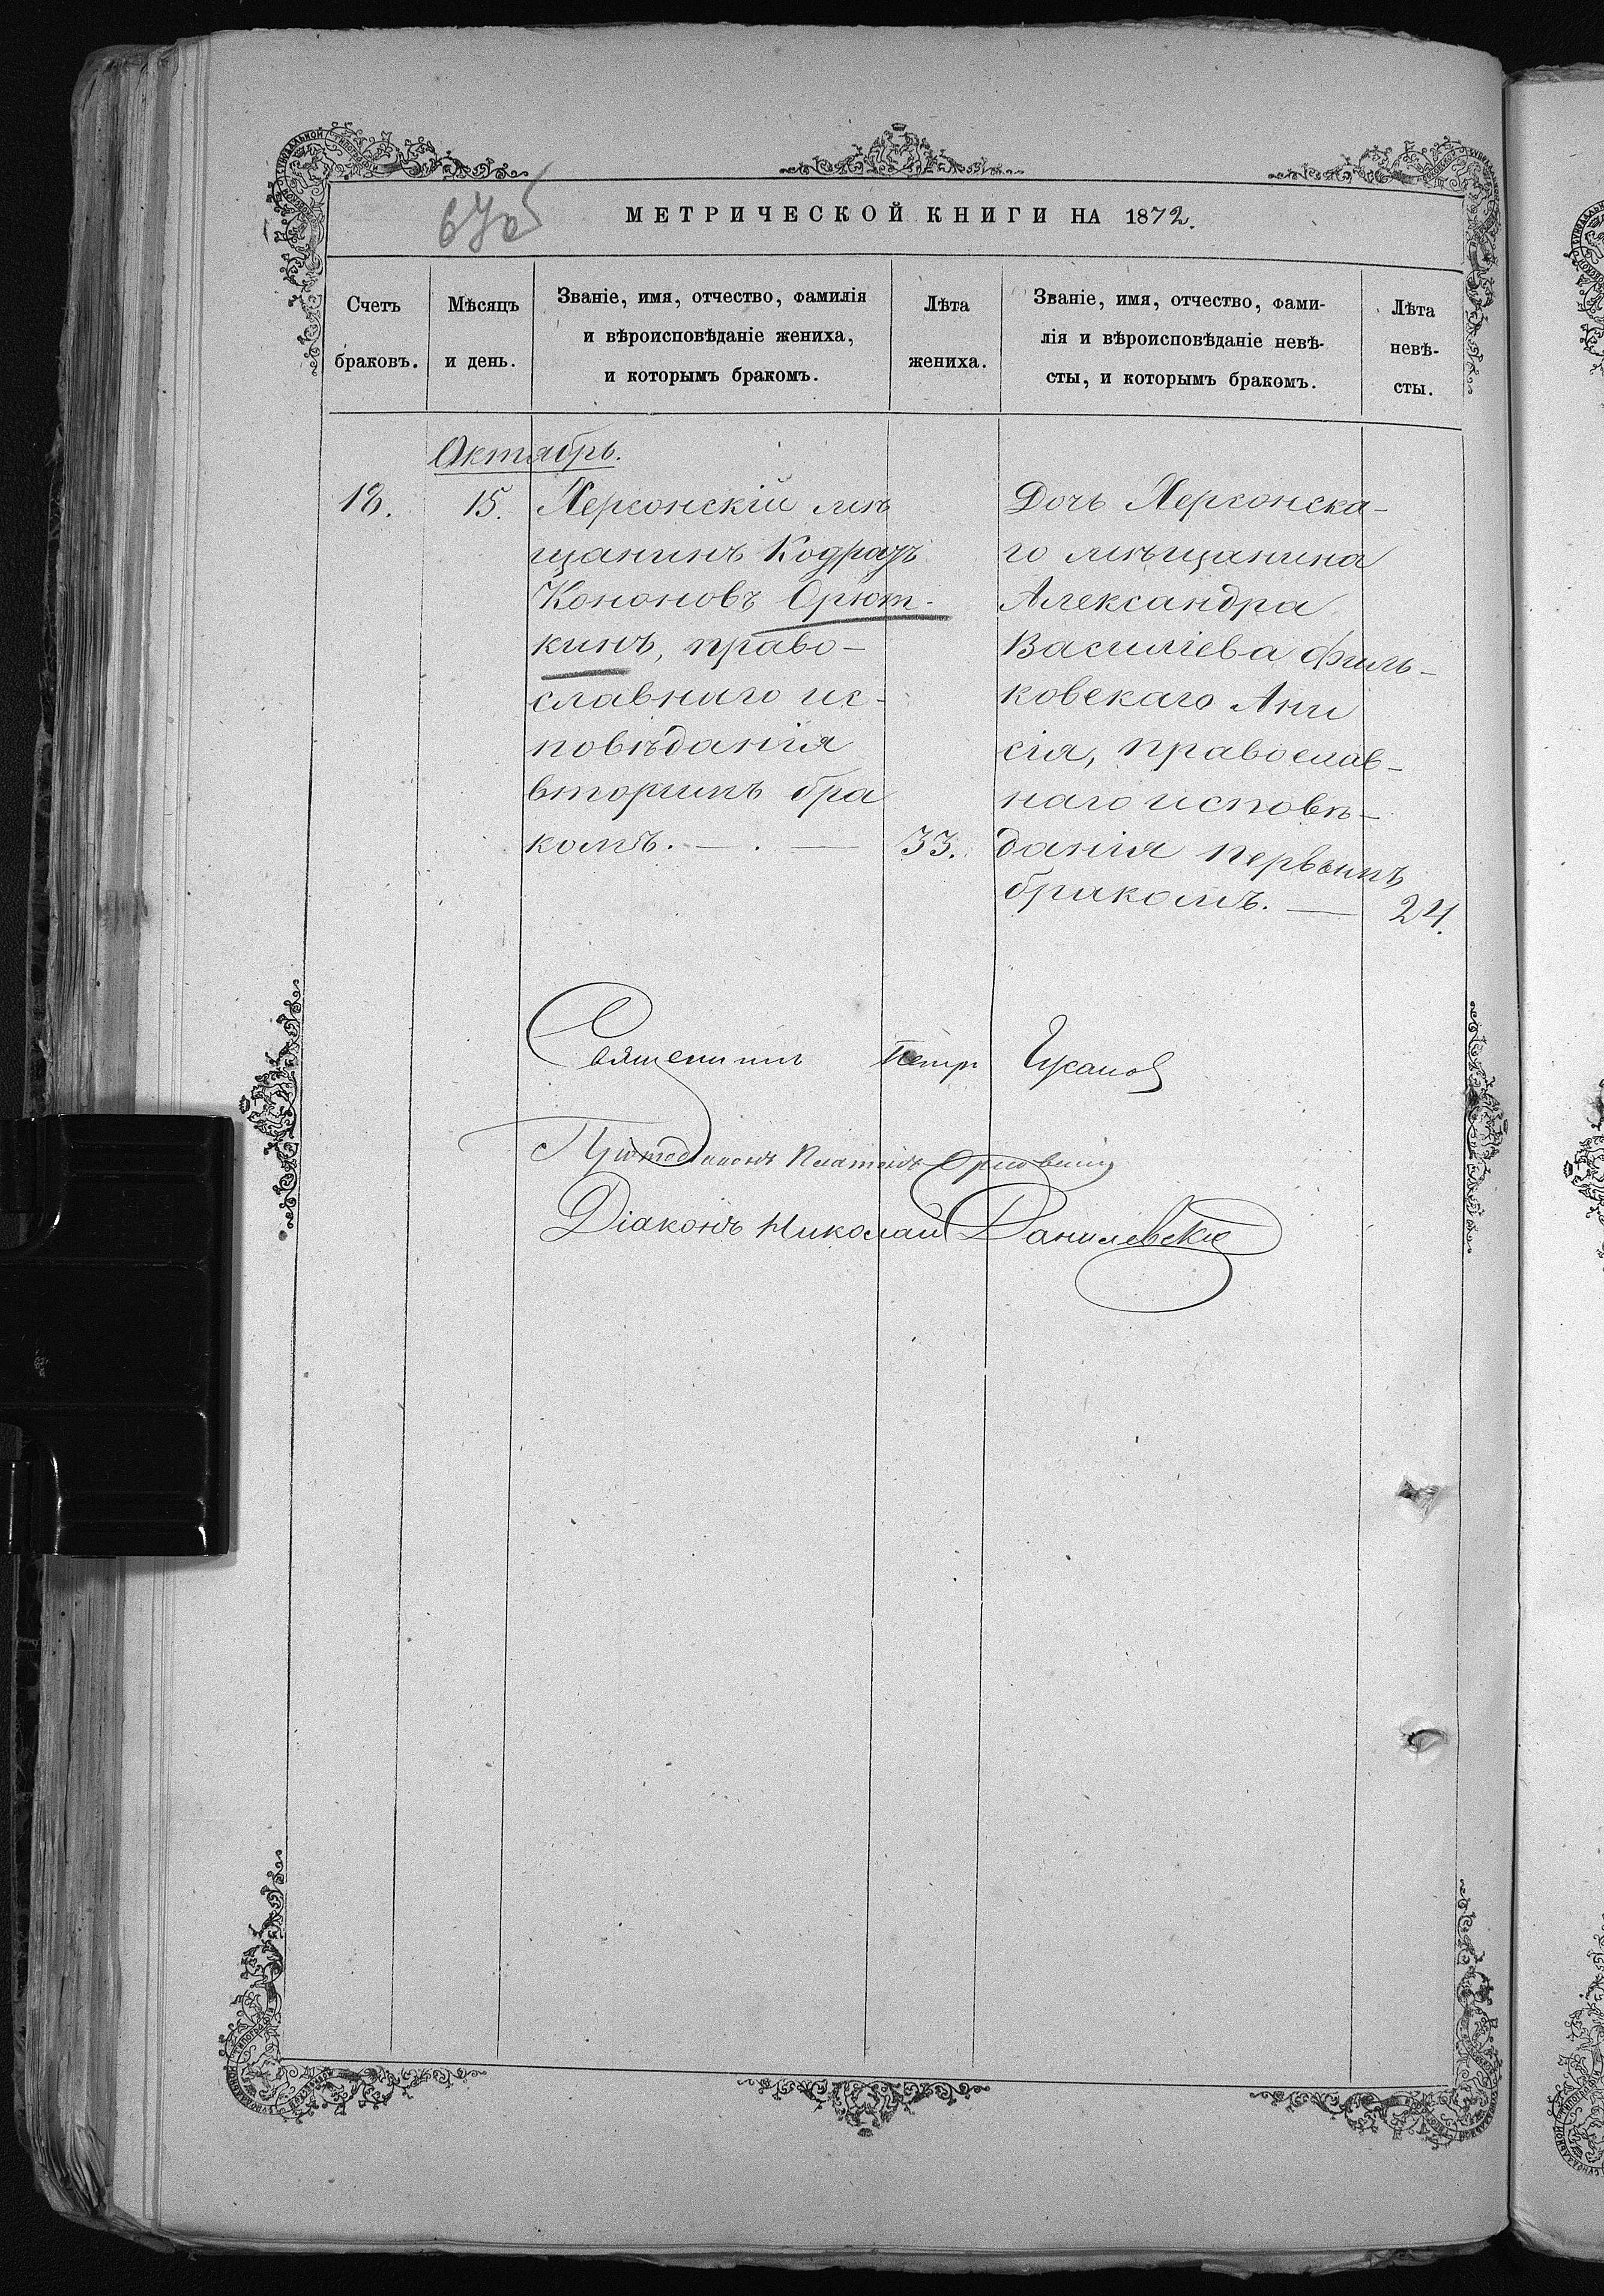 МЕТРИЧЕСКОЙ КНИГИ НА 1872.
Счетъ браковъ.
Мѣсяцъ и день.
Званіе, имя, отчество, фамилія
и вѣроисповѣданіе жениха,
и которымъ бракомъ.
Лѣта жениха.
Званіе, имя, отчество, фами-
лія и вѣроисповѣданіе невѣ-
сты, и которымъ бракомъ.
Лѣта невѣ-
сты.
Октябрь.
18.
15.
Херсонскій мѣ
щанинъ Кодратъ
Кононовъ Орют-
кинъ, право-
славнаго ис-
повѣданія
вторымъ бра
комъ.
33.
Дочь Херсонска-
го мѣщанина
Александра
Василіева Филь-
ковскаго Ани
сія, православ-
наго исповѣ-
данія первымъ
бракомъ.
24.
Священникъ Петръ
Діаконъ Николай Данилевскій